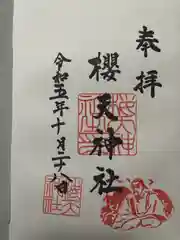 奉拝
櫻天神社
令和五年十月二十八日